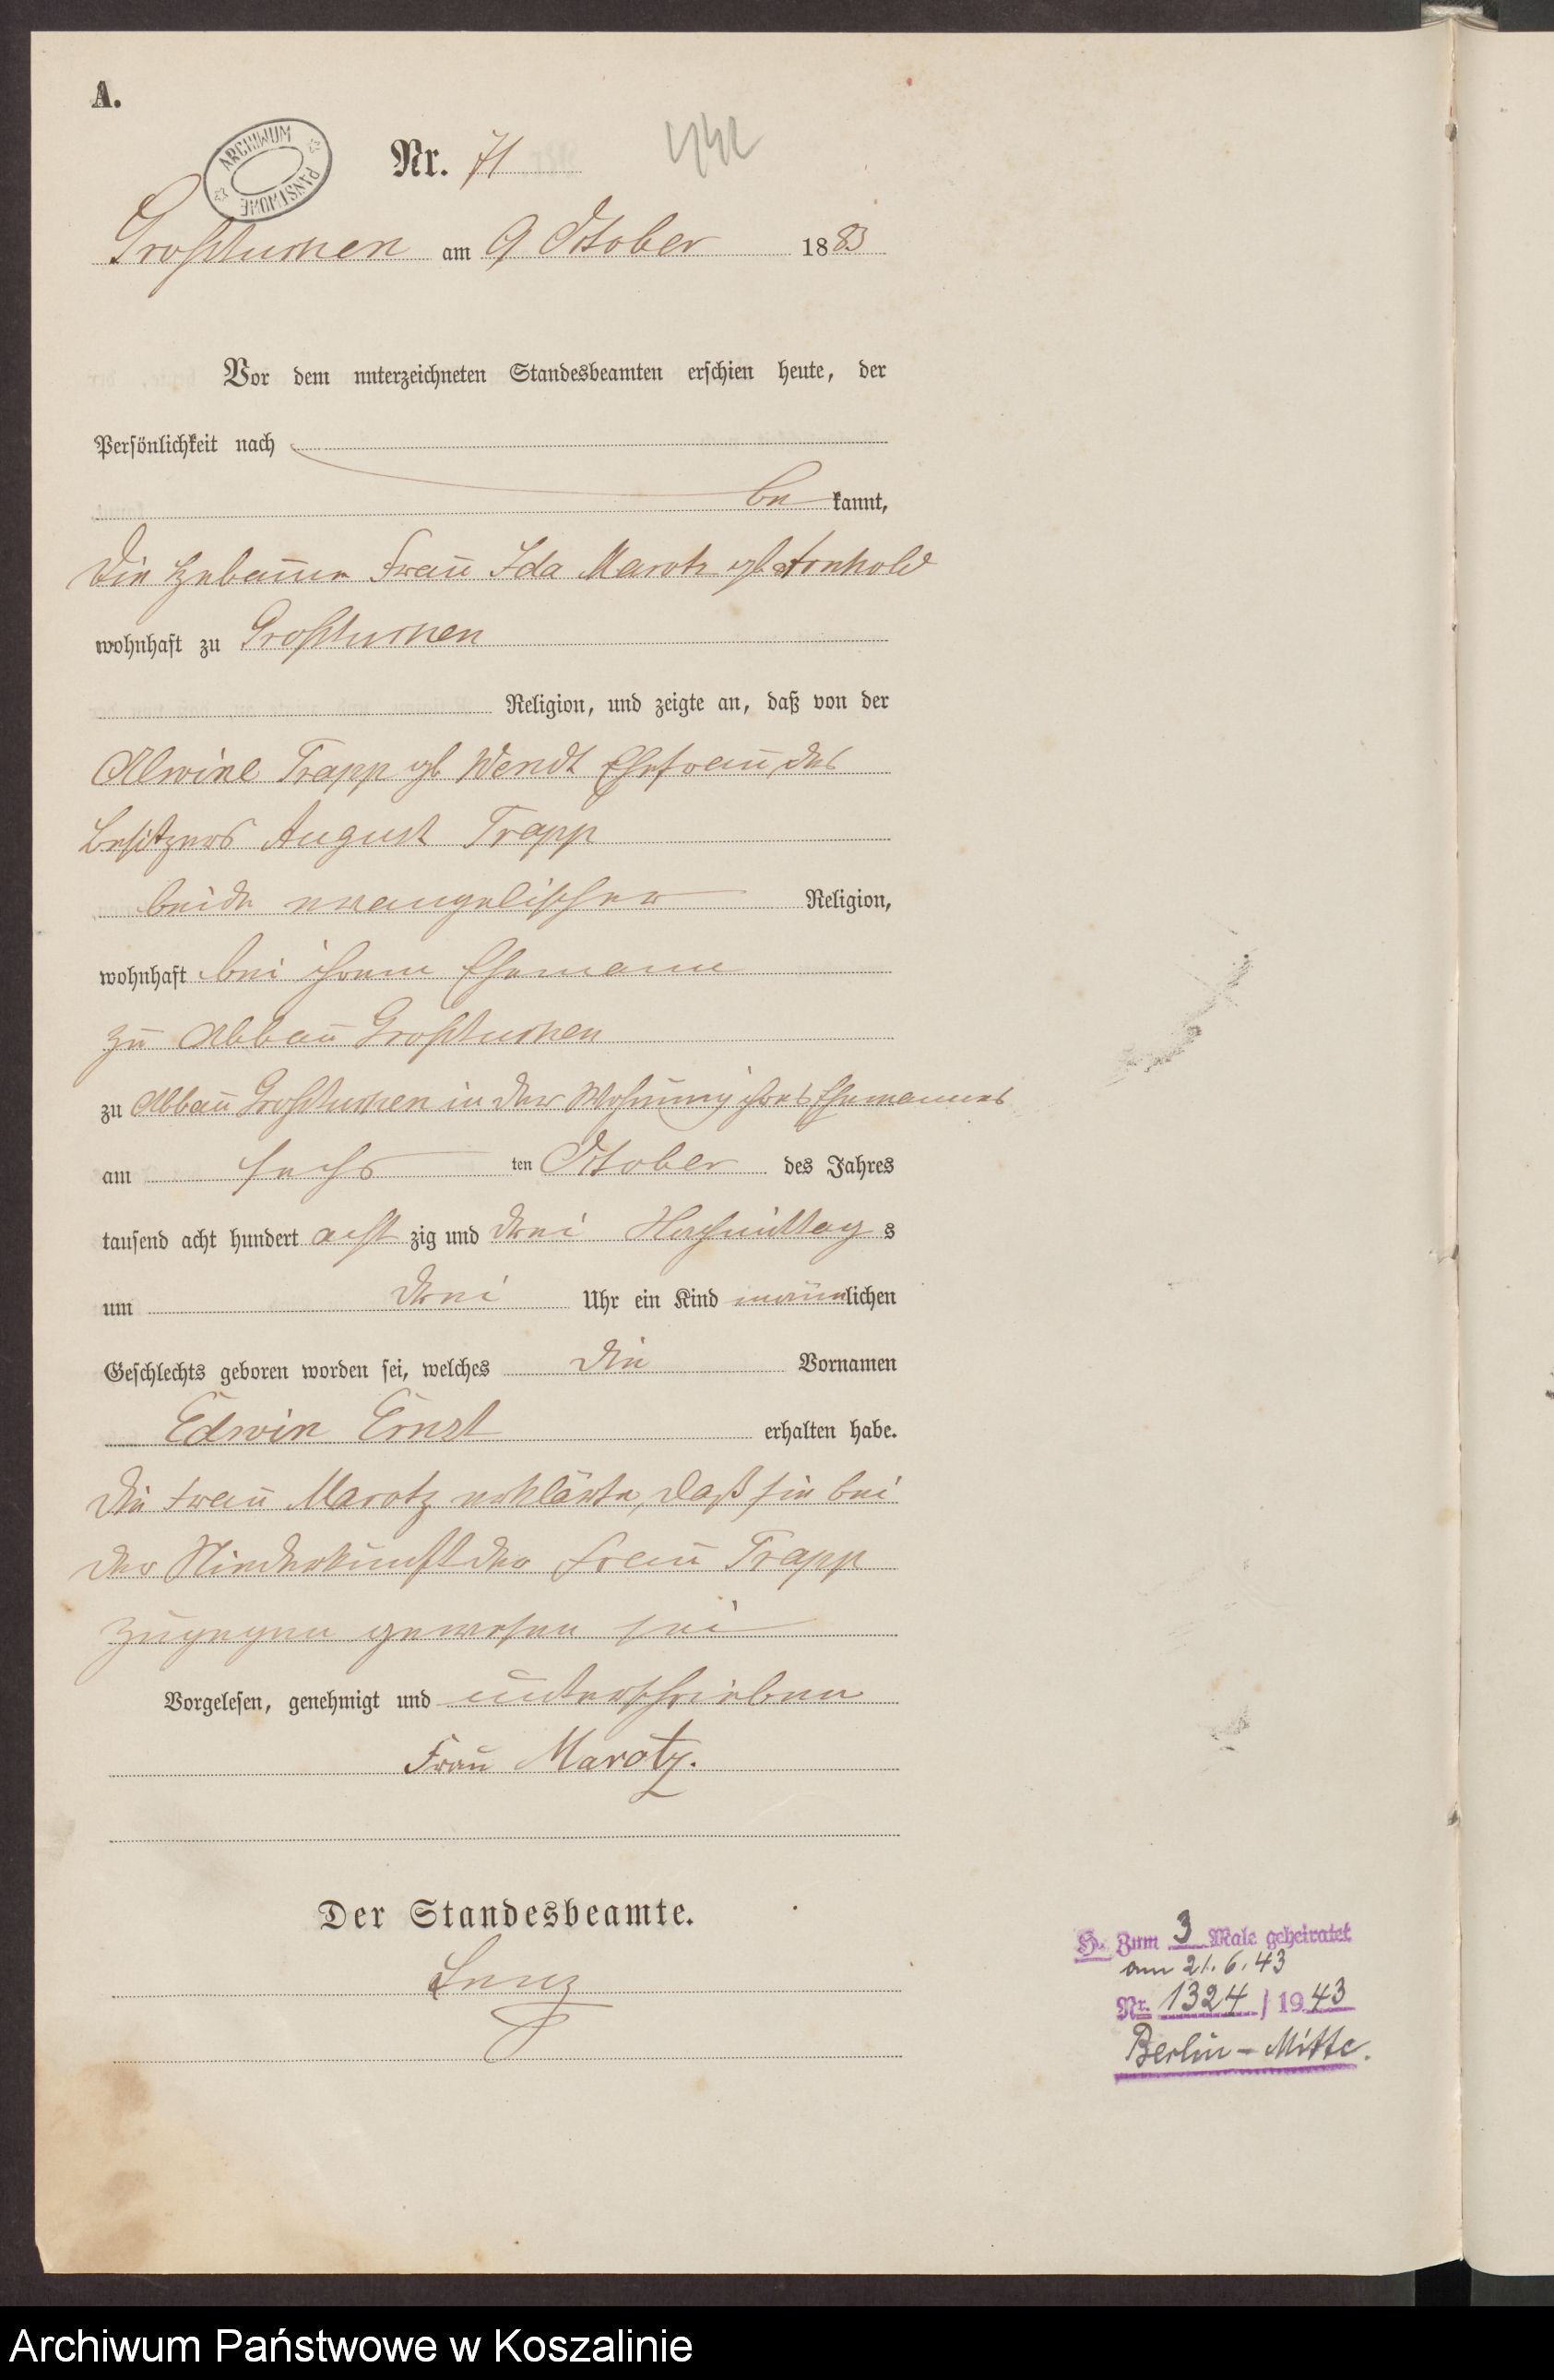 A.
ARCHIWUM PAŃSTWOWE
Nr. 71
442
Großtuchen am 9 October 1883
Vor dem unterzeichneten Standesbeamten erschien heute, der
Persönlichkeit nach
be kannt,
die Hebamme Frau Ida Marotz gb Arnhold
wohnhaft zu Großtuchen
Religion, und zeigte an, daß von der
Alwine Trapp gb Wendt Ehefrau des
Besitzers August Trapp
beide evangelischer Religion,
wohnhaft bei ihrem Ehemann
zu Abbau Großtuchen
zu Abbau Großtuchen in der Wohnung ihres Ehemannes
am sechs ten October des Jahres
tausend acht hundert acht zig und drei Nachmittag s
um drei Uhr ein Kind männlichen
Geschlechts geboren worden sei, welches die Vornamen
Edwin Ernst erhalten habe.
Die Frau Marotz erklärte, daß sie bei
der Niederkunft der Frau Trapp
zugegen gewesen sei
Vorgelesen, genehmigt und unterschrieben
Frau Marotz.
Der Standesbeamte.
Lenz
H. Zum 3 Male geheiratet
am 21.6.43
Nr. 1324 / 1943
Berlin-Mitte.
Archiwum Państwowe w Koszalinie